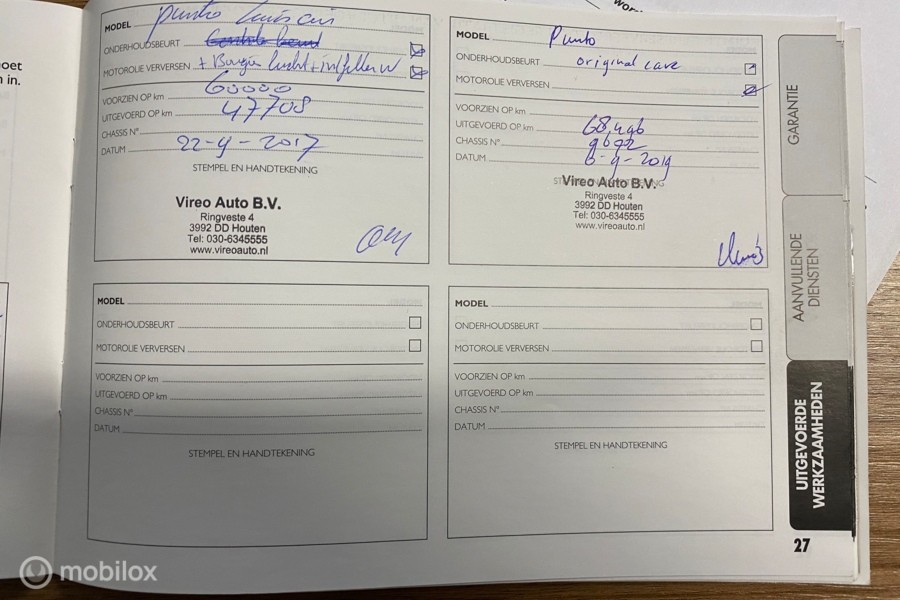 oet
in.
MODEL Punto
ONDERHOUDSBEURT
MOTOROLIE VERVERSEN +
VOORZIEN OP km 60000
UITGEVOERD OP km 47708
CHASSIS N°
DATUM 22-9-2017
STEMPEL EN HANDTEKENING
Vireo Auto B.V.
Ringveste 4
3992 DD Houten
Tel: 030-6345555
www.vireoauto.nl
MODEL Punto
ONDERHOUDSBEURT original care
MOTOROLIE VERVERSEN
VOORZIEN OP km
UITGEVOERD OP km 68,496
CHASSIS N° 9692
DATUM 6-9-2019
Vireo Auto B.V.
Ringveste 4
3992 DD Houten
Tel: 030-6345555
www.vireoauto.nl
MODEL
ONDERHOUDSBEURT
MOTOROLIE VERVERSEN
VOORZIEN OP km
UITGEVOERD OP km
CHASSIS N°
DATUM
STEMPEL EN HANDTEKENING
MODEL
ONDERHOUDSBEURT
MOTOROLIE VERVERSEN
VOORZIEN OP km
UITGEVOERD OP km
CHASSIS N°
DATUM
STEMPEL EN HANDTEKENING
GARANTIE
AANVULLENDE
DIENSTEN
UITGEVOERDE
WERKZAAMHEDEN
27
mobilox